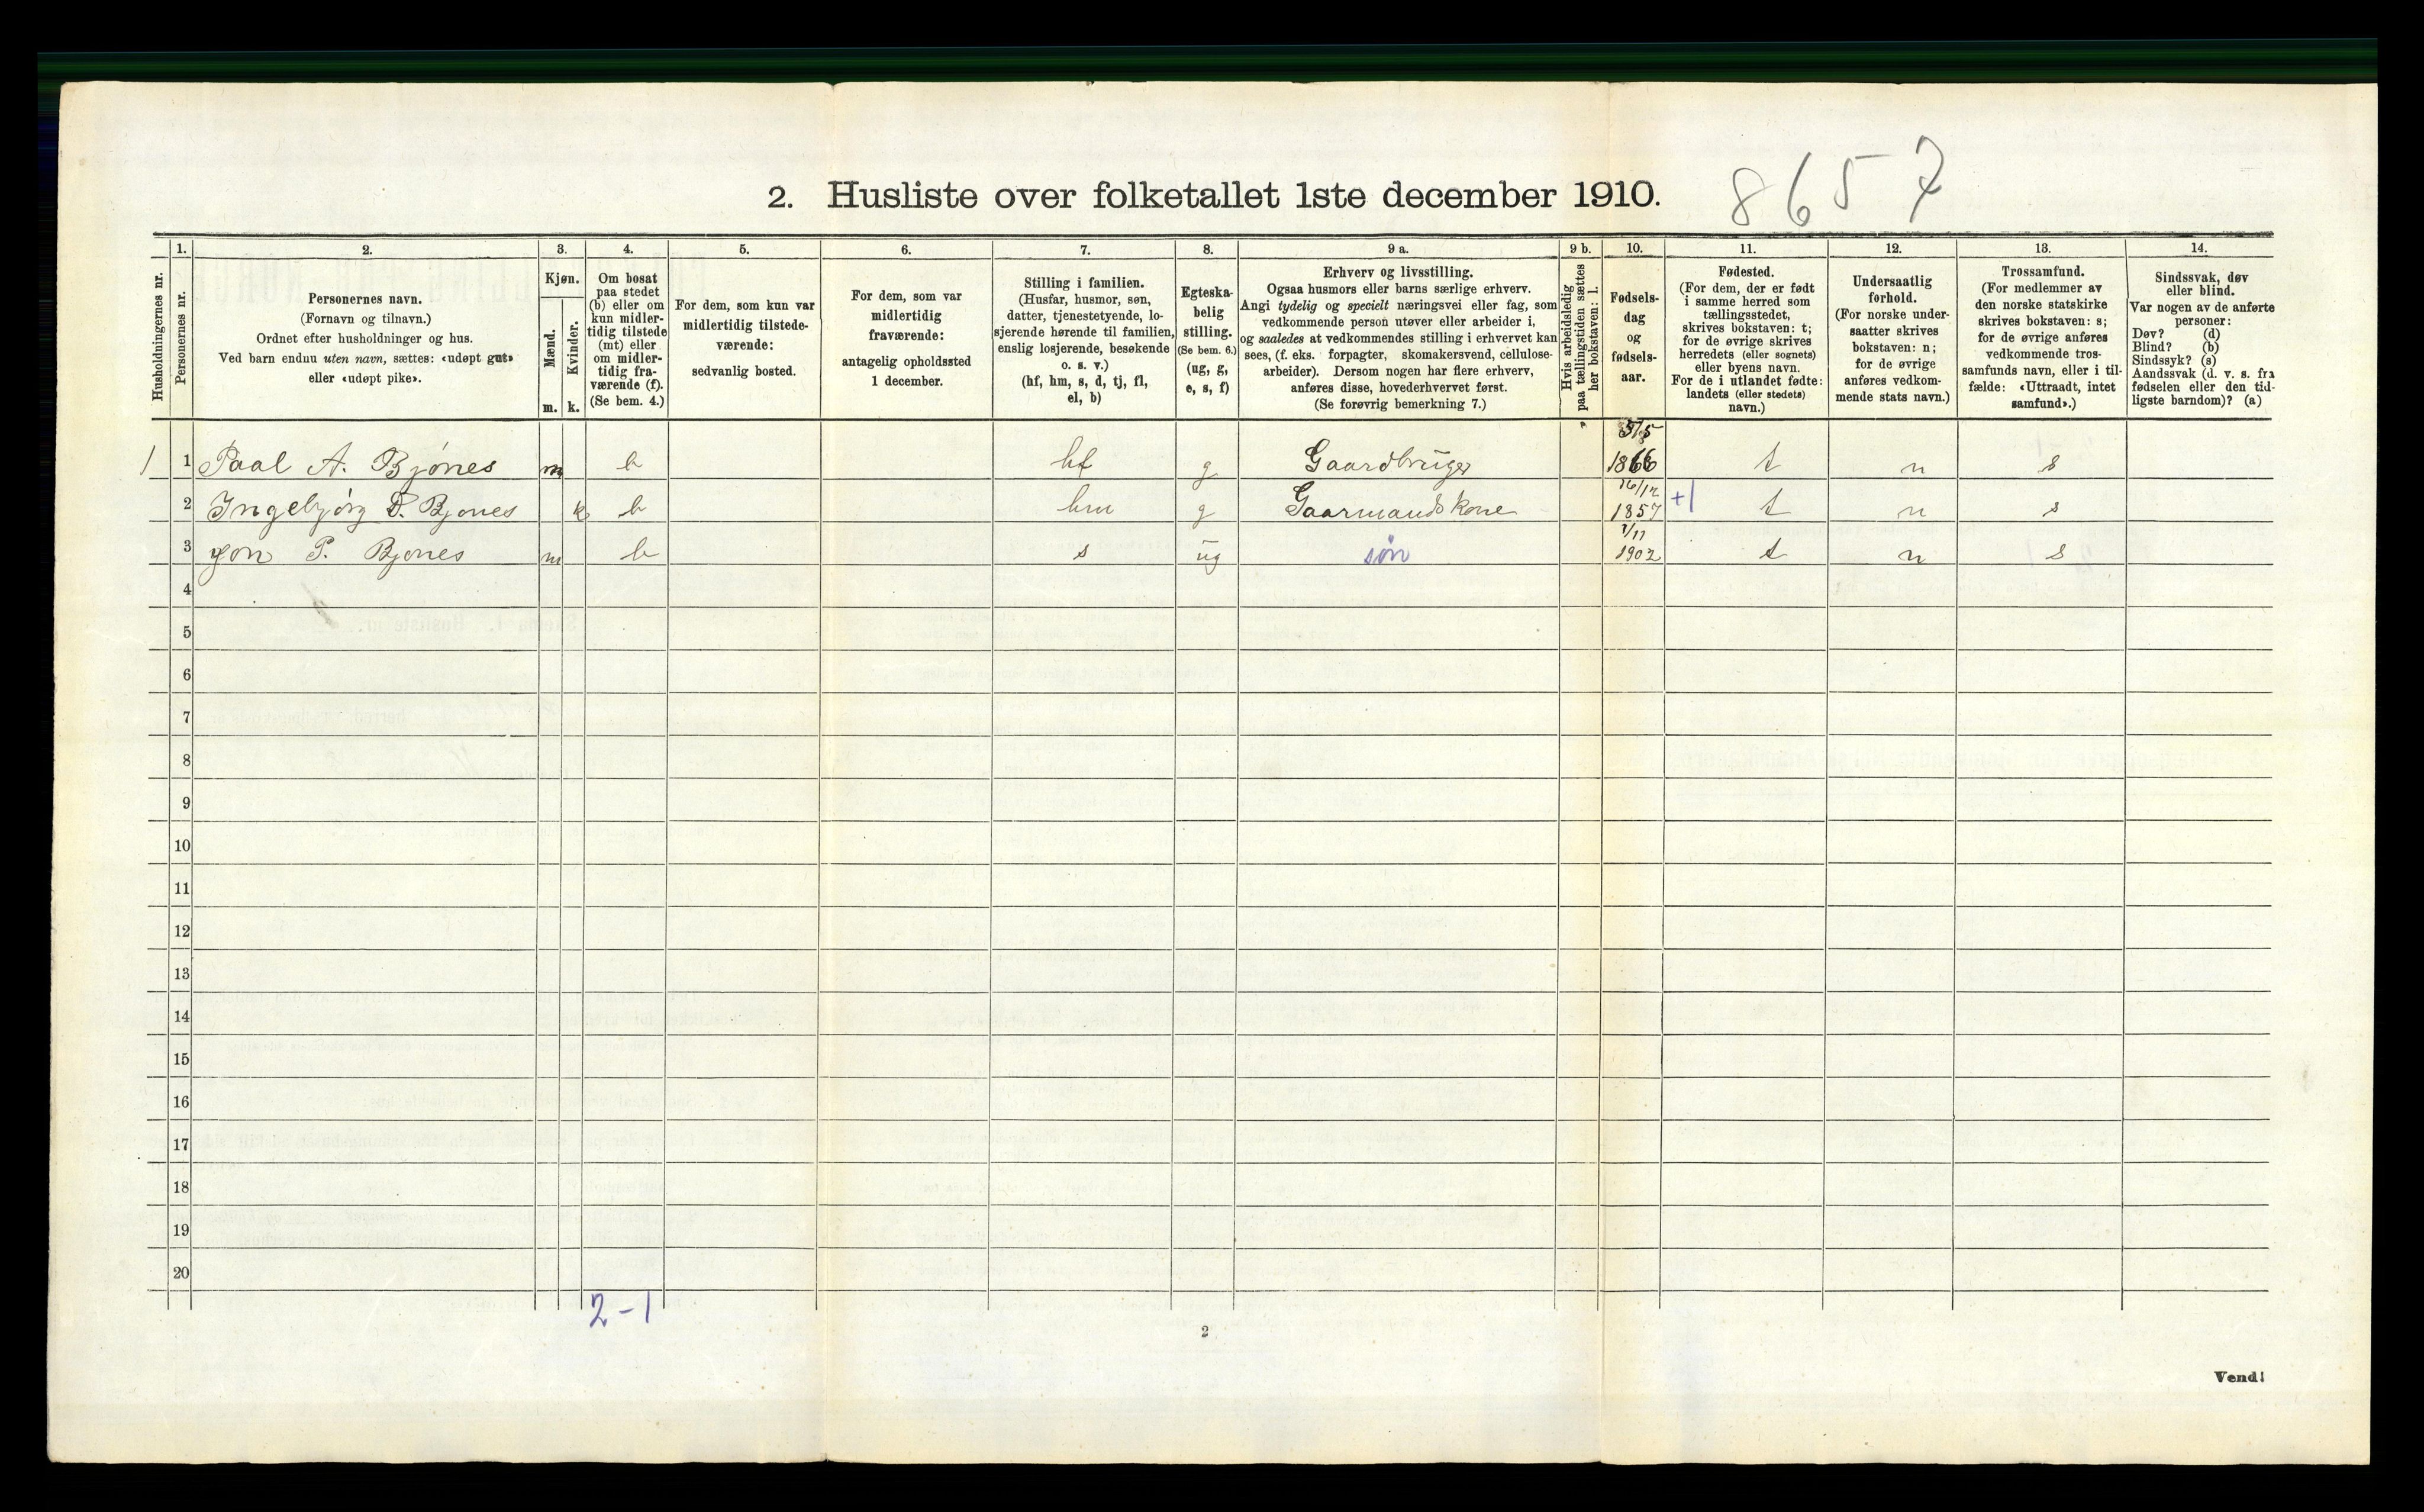 8657
2. Husliste over folketallet 1ste december 1910.
Husholdningernes nr.
1.
Personernes nr.
2.
Personernes navn.
(Fornavn og tilnavn.)
Ordnet efter husholdninger og hus.
Ved barn endnu uten navn, sættes: «udøpt gut»
eller «udøpt pike».
3.
Kjøn.
Mænd.
m.
Kvinder.
k.
4.
Om bosat
paa stedet
(b) eller om
kun midler-
tidig tilstede
(mt) eller
om midler-
tidig fra-
værende (f).
(Se bem. 4.)
5.
For dem, som kun var
midlertidig tilstede-
værende:
sedvanlig bosted.
6.
For dem, som var
midlertidig
fraværende:
antagelig opholdssted
1 december.
7.
Stilling i familien.
(Husfar, husmor, søn,
datter, tjenestetyende, lo-
sjerende hørende til familien,
enslig losjerende, besøkende
o. s. v.)
(hf, hm, s, d, tj, fl,
el, b)
8.
Egteska-
belig
stilling.
(Se bem. 6.)
(ug, g,
e, s, f)
9 a.
Erhverv og livsstilling.
Ogsaa husmors eller barns særlige erhverv.
Angi tydelig og specielt næringsvei eller fag, som
vedkommende person utøver eller arbeider i,
og saaledes at vedkommendes stilling i erhvervet kan
sees, (f. eks. forpagter, skomakersvend, cellulose-
arbeider). Dersom nogen har flere erhverv,
anføres disse, hovederhvervet først.
(Se forøvrig bemerkning 7.)
9 b.
Hvis arbeidsledig
paa tællingstiden sættes
her bokstaven: l.
10.
Fødsels-
dag
og
fødsels-
aar.
11.
Fødested.
(For dem, der er født
i samme herred som
tællingsstedet,
skrives bokstaven: t;
for de øvrige skrives
herredets (eller sognets)
eller byens navn.
For de i utlandet fødte:
landets (eller stedets)
navn.)
12.
Undersaatlig
forhold.
(For norske under-
saatter skrives
bokstaven: n;
for de øvrige
anføres vedkom-
mende stats navn.)
13.
Trossamfund.
(For medlemmer av
den norske statskirke
skrives bokstaven: s;
for de øvrige anføres
vedkommende tros-
samfunds navn, eller i til-
fælde: «Uttraadt, intet
samfund».)
14.
Sindssvak, døv
eller blind.
Var nogen av de anførte
personer:
Døv? (d)
Blind? (b)
Sindssyk? (s)
Aandssvak (d. v. s. fra
fødselen eller den tid-
ligste barndom)? (a)
1 1 Paal A. Bjönes m b hf g Gaardbruger 1866 t n s
2 Ingebjörg Bjones k b hm g Gaarmands Kone 16/12 1857 +1 t n s
3 Jon P. Bjones m b s ug sön 1/11 1902 t n s
4
5
6
7
8
9
10
11
12
13
14
15
16
17
18
19
20
2-1
2
Vend!